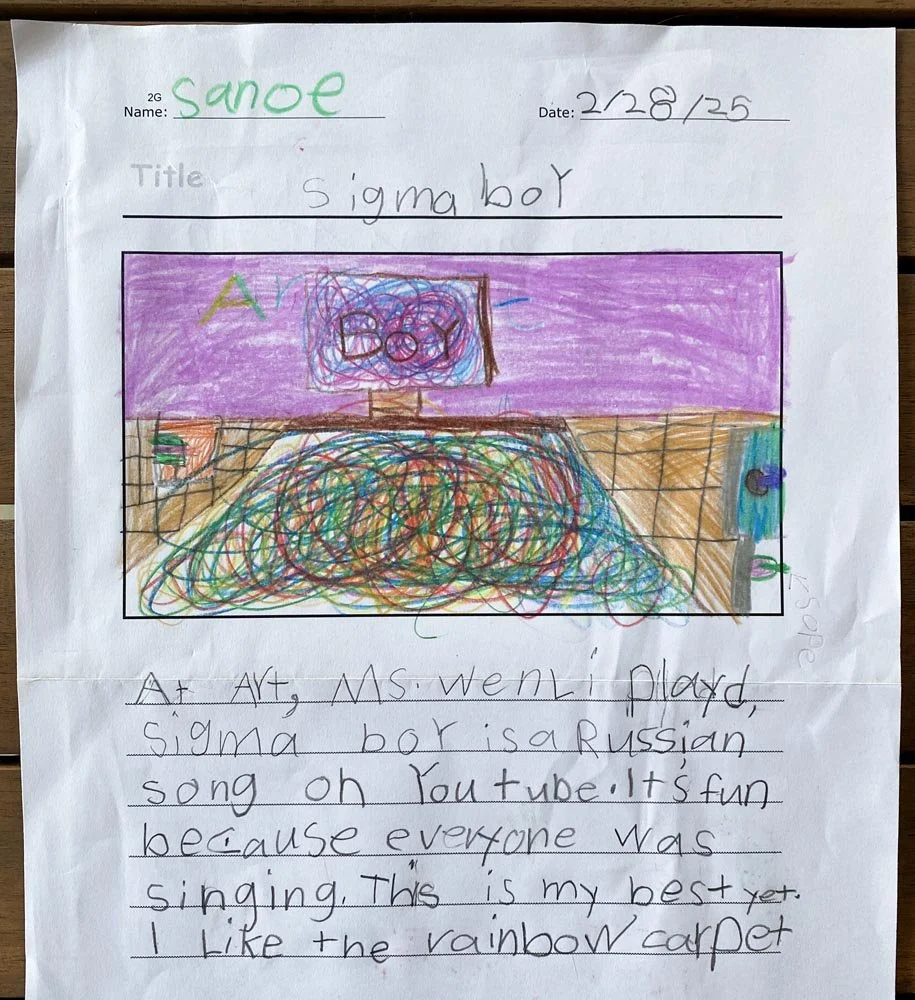 2G
Name: Sanoe
Date: 2/28/25
Title
Sigma boy
Ar
BoY
At Art, Ms. wenLi playd,
Sigma boy is a Russian
song on Youtube. It's fun
because everyone was
singing. This is my best yet.
I Like the rainbow carpet